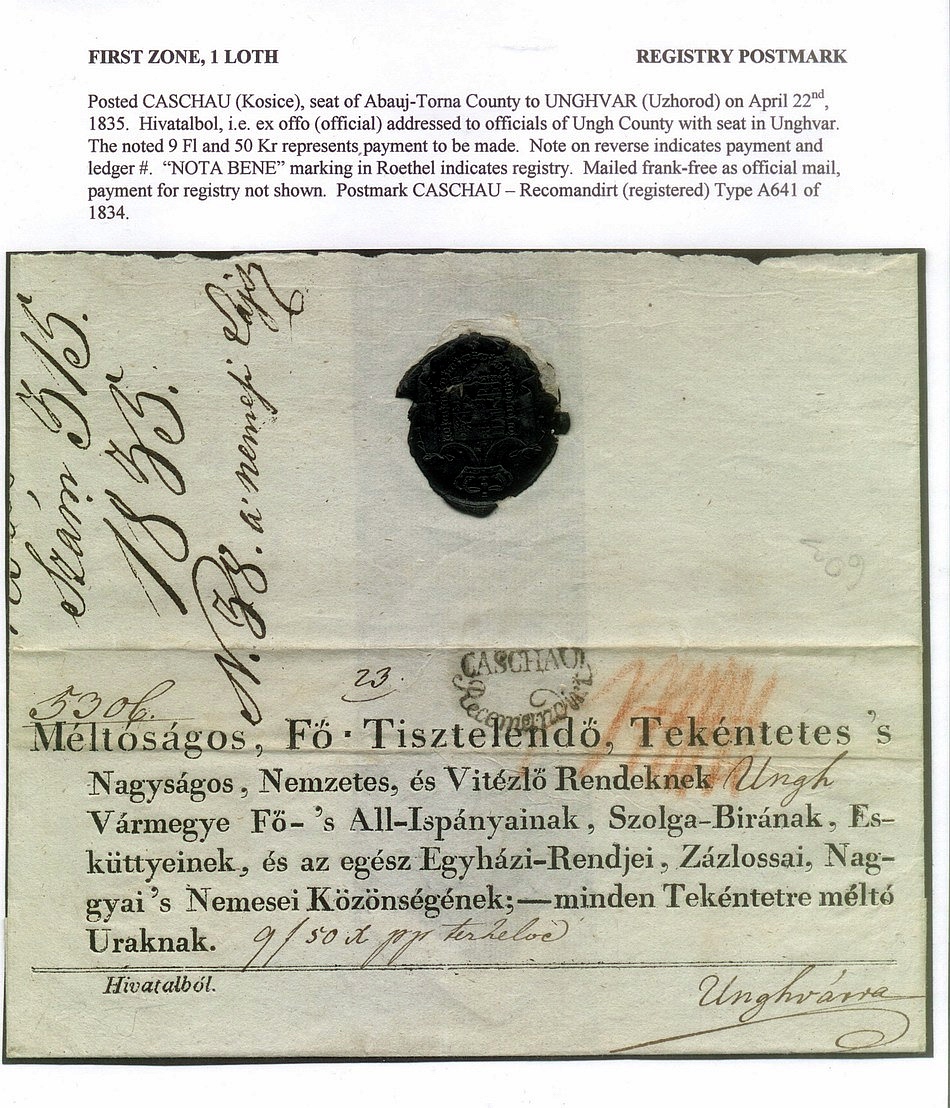 FIRST ZONE, 1 LOTH
REGISTRY POSTMARK
Posted CASCHAU (Kosice), seat of Abauj-Torna County to UNGHVAR (Uzhorod) on April 22nd,
1835. Hivatalbol, i.e. ex offo (official) addressed to officials of Ungh County with seat in Unghvar.
The noted 9 Fl and 50 Kr represents payment to be made. Note on reverse indicates payment and
ledger #. “NOTA BENE” marking in Roethel indicates registry. Mailed frank-free as official mail,
payment for registry not shown. Postmark CASCHAU – Recomandirt (registered) Type A641 of
1834.
Szám 315.
1835.
N. 38. a' nemesi
23.
CASCHAU
Recomandirt
5306.
Méltóságos, Fő-Tisztelendő, Tekéntetes 's
Nagyságos, Nemzetes, és Vitézlő Rendeknek Ungh
Vármegye Fő- 's All-Ispányainak, Szolga-Birának, Es-
küttyeinek, és az egész Egyházi-Rendjei, Zázlossai, Nag-
gyai 's Nemesei Közönségének;—minden Tekéntetre méltó
Uraknak. 9/50 x pp
Hivatalból.
Unghvárra